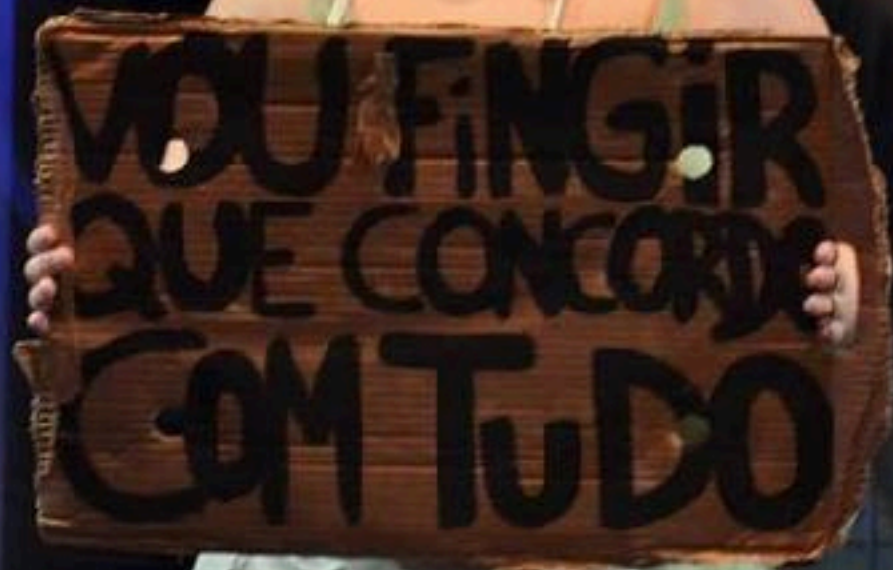 VOU FiNGiR
QUE CONCORDO
COM TuDO